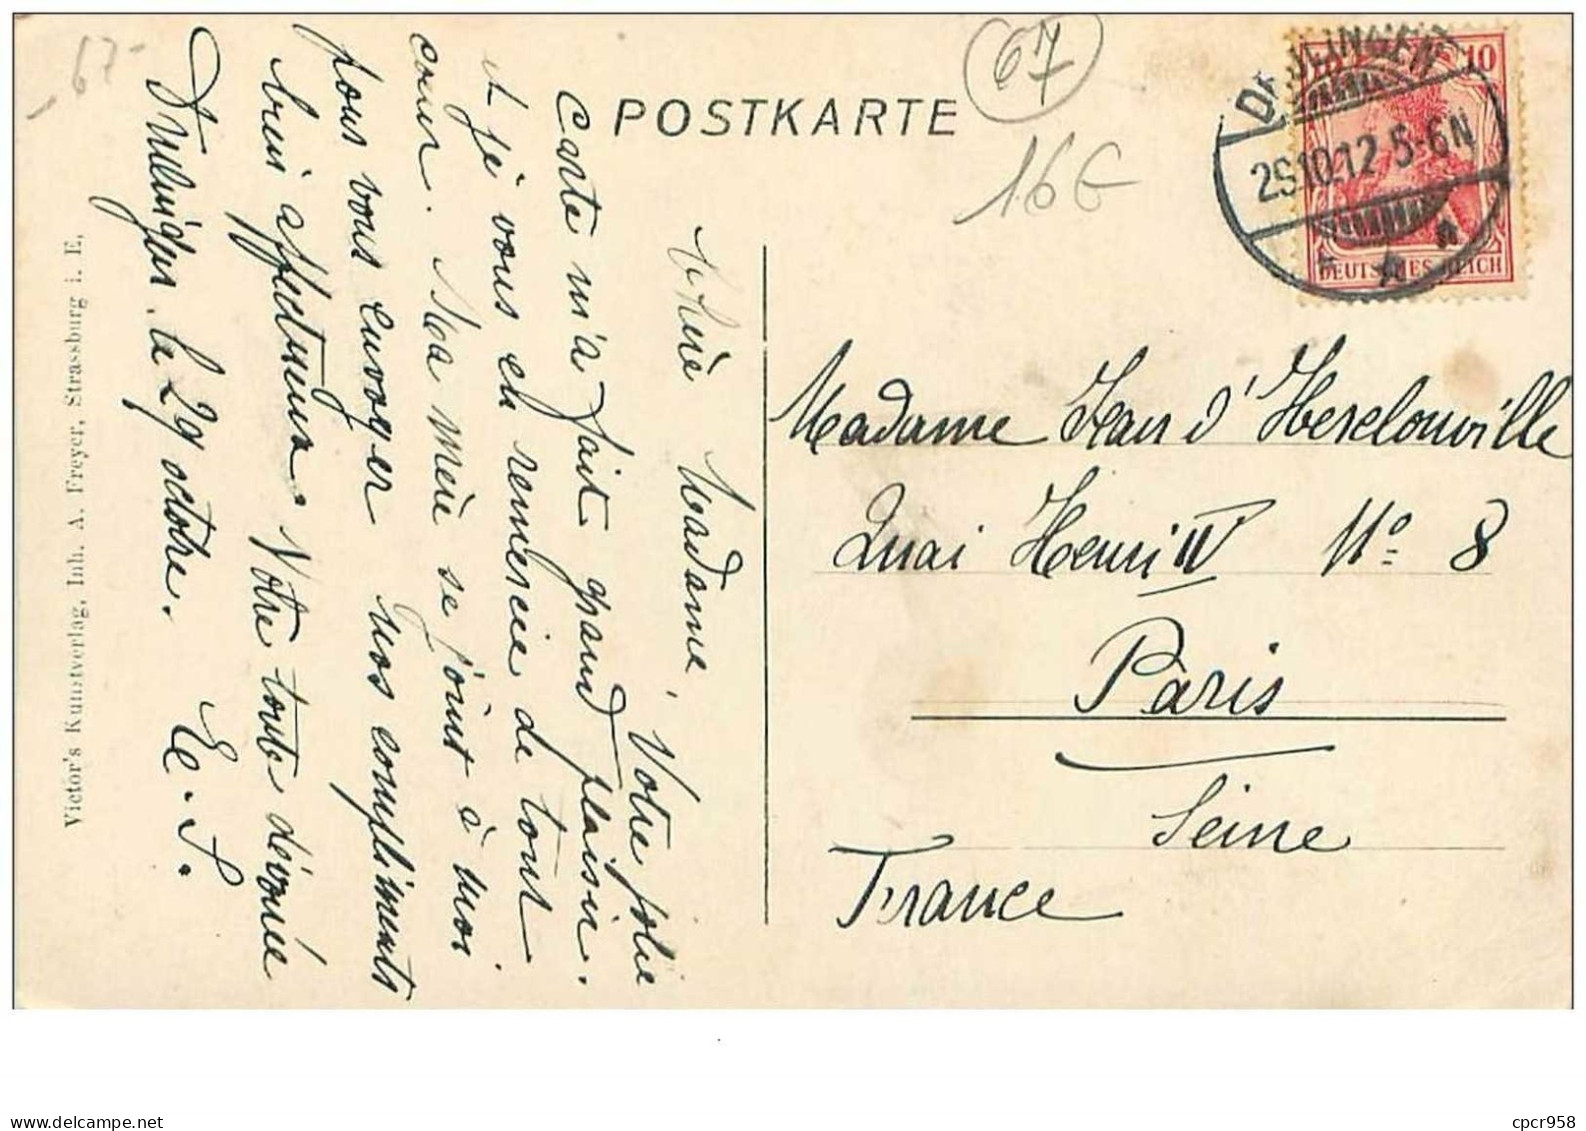 67
67
16€
POSTKARTE
10
DEUTSCHES REICH
29.10.12.5-6N
Chère Madame,
Votre jolie
carte m'a fait grand plaisir.
et je vous en remercie de tout
cœur. Ma mère se joint à moi
pour vous envoyer nos compliments
bien affectueux. Votre toute dévouée
Drulingen, le 29 octobre. E. S.
Madame Jean d'Heselouville
Quai Henri IV No. 8
Paris
Seine
France
Victor's Kunstverlag, Inh. A. Freyer, Strassburg i. E.
cpcr958